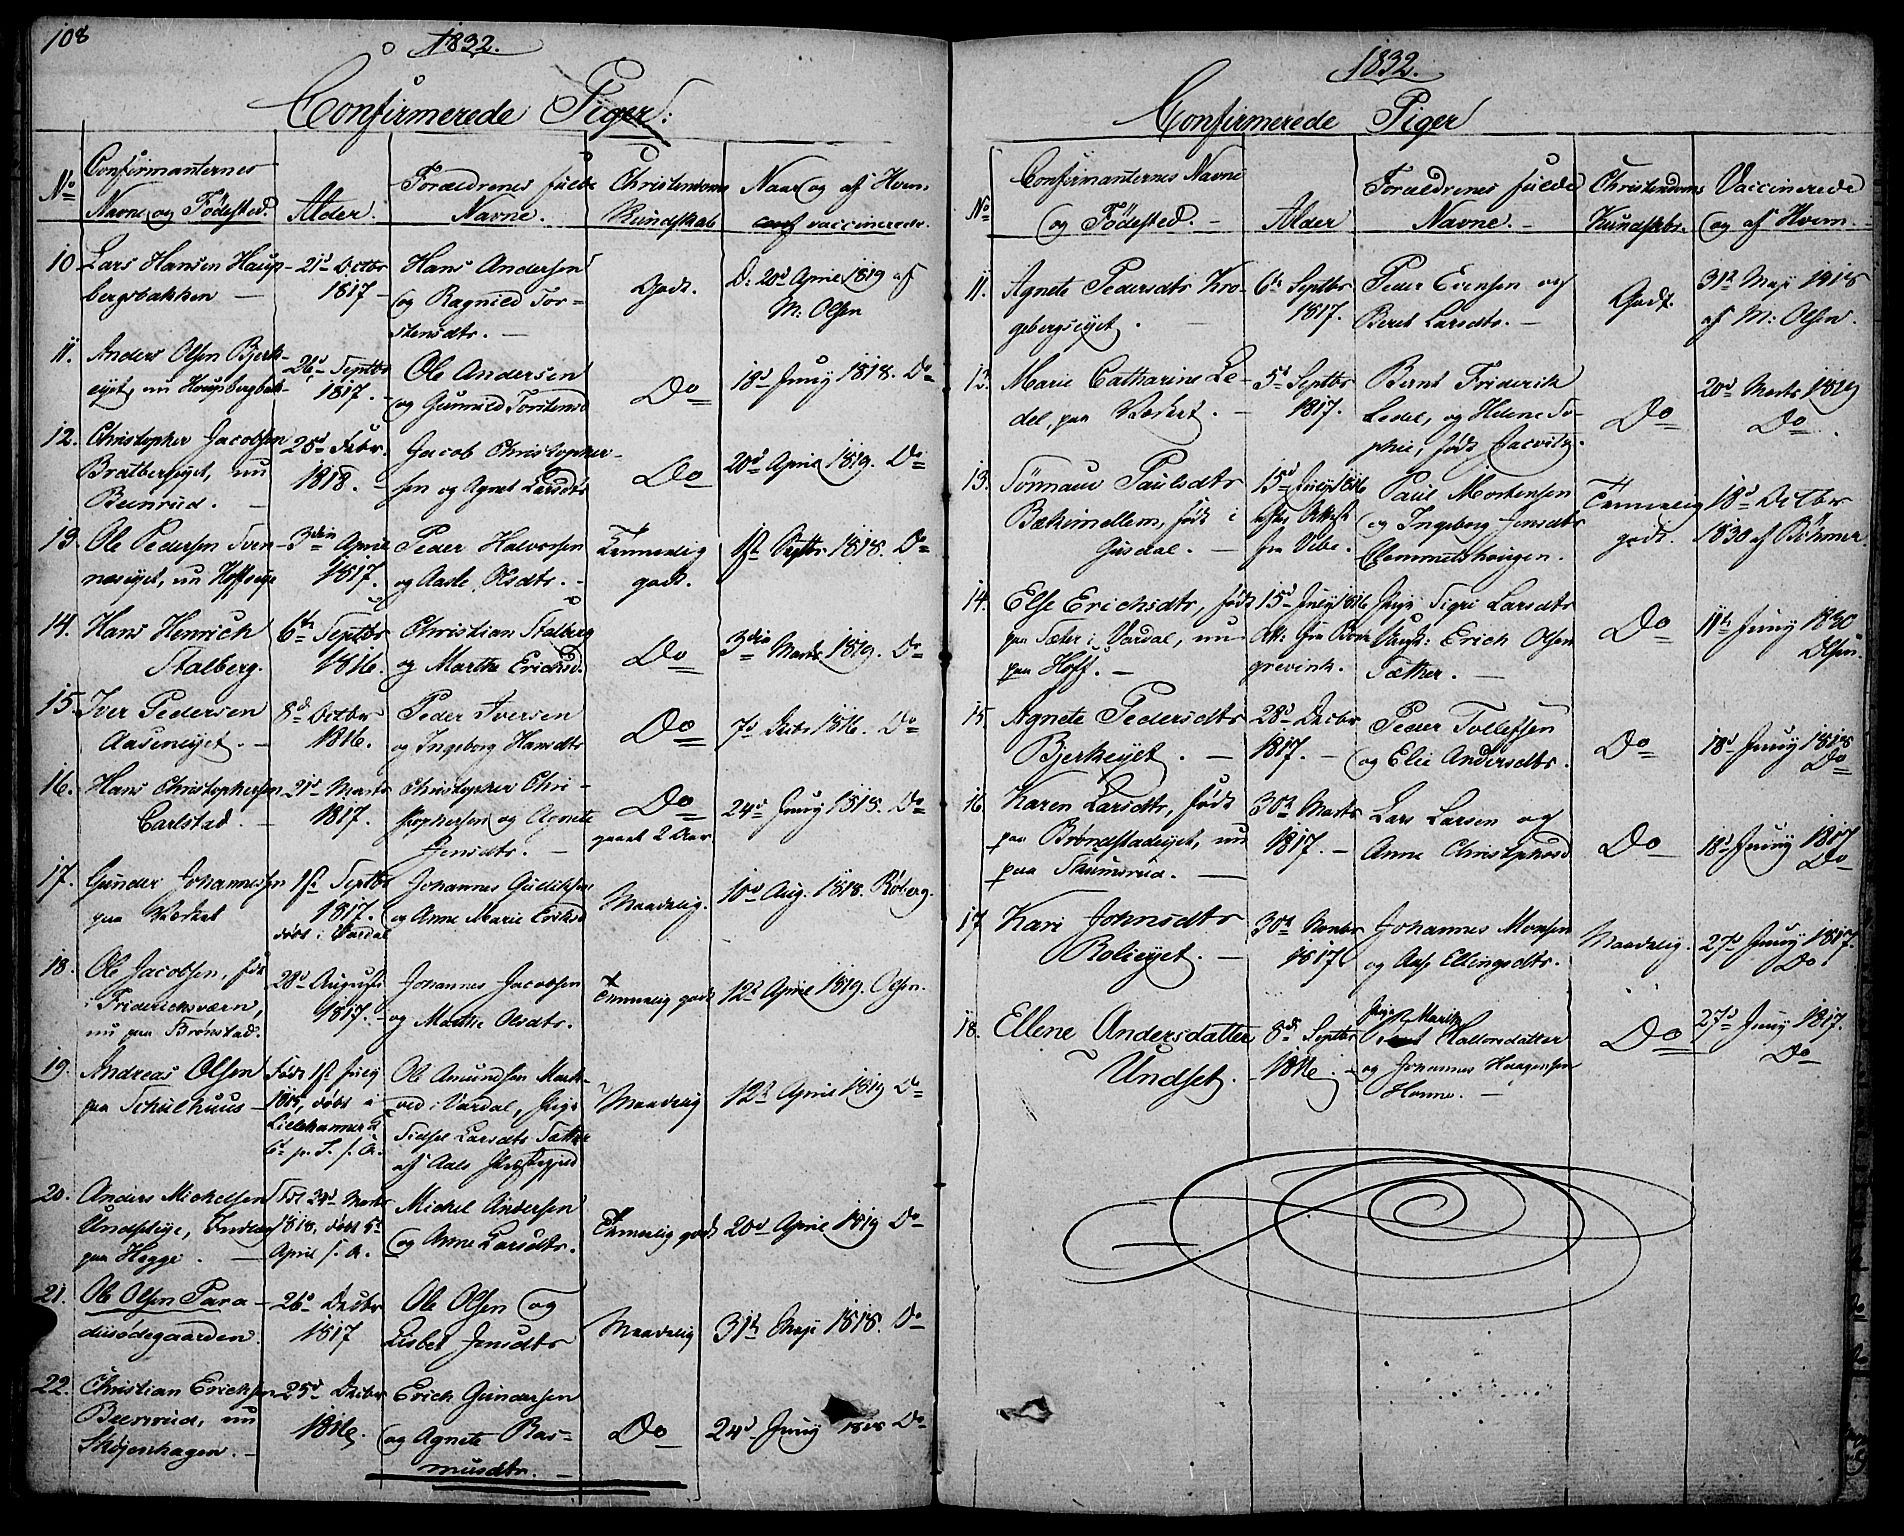 108
1832.
Confirmerede Piger:
No
Confirmanternes
Navne og Fødested.
Alder.
Forældrenes fulde
Navne.
Christendoms
Kundskab
Naar og af Hvem
vaccinerede.
10 Lars Hansen Haup-
bergsbakken —
21d Octbr
1817 —
Hans Andersen
og Ragnild Tor-
stensdtr. —
Godt.
D: 20d April 1819 af
M: Olsen
11. Anders Olsen Bjerk-
eiet, nu Houpsbergbak-
26d Septbr
1817. —
Ole Andersen
og Gunnild Torstensd
Do
18d Juny 1818. Do
12. Christopher Jacobsen
Bratbergeiet, nu
Beenrud. —
25d Febr.
1818. —
Jacob Christopher-
sen og Agnet Larsdtr
Do
20d April 1819. Do
13. Ole Pedersen Sven-
neseiet, nu Hoffseye
3die April
1817.
Peder Halvorsen
og Aase Olsdtr. —
Temmelig
godt.
1st Septbr 1818. Do
14. Hans Henrich
Stalberg.
6te Septbr
1816.
Christian Stalberg
og Marthe Erichsd.
Do
3die Marts 1819. Do
15. Iver Pedersen
Aaseneiet. —
8d Octbr
1816.
Peder Iversen
og Ingeborg Hansdtr
Do
7d Decbr 1816. Do
16. Hans Christophersen
Carlstad. —
21d Marts
1817.
Christopher Chri-
stophersen og Agnete
Jensdtr. —
Do
gaaet 2 Aar
24d Juny 1818. Do
17. Gunder Johannesen
paa Værket
1st Septbr
1817.
døbt i Vardal
Johannes Gudiksen
og Anne Marie Eriksd
Maadelig.
10d Aug. 1818. Røberg.
18. Ole Jacobsen, fød
i Fridericksværn,
nu paa Brønstad.
28d August
1817. —
Johannes Jacobsen
og Marthe Olsdtr.
Temmelig godt
12d April 1819. Olsen.
19. Andreas Olsen
paa Schulhuus —
Født 1st July
1815, døbt i
Lillehammer d
6d p. T. s. A.
Ole Amundsen Mark-
ved i Vardal, Pige
Sidsel Larsdtr Sætter
af Aals Præstegjeld
Maadelig
12d April 1819 Do
20. Anders Michelsen
paa Hegge. —
24d Marts
1818, døbt 5d
April s. A.
Michel Andersen
og Anne Larsdtr.
Temmelig godt
20d April 1819 Do
21. Ole Olsen Para-
diisødegaarden.
26d Decbr
1817
Ole Olsen og
Lisbet Jensdtr
Maadelig
31te Maji 1818. Do
22. Christian Erichsen
Beenrud, nu
Skøyenhagen. —
25d Decbr
1816.
Erich Gundersen
og Agnete Ras-
musdtr. —
Do
24d Juny 1818 Do
1832.
Confirmerede Piger
No
Confirmanternes Navne
og Fødested. —
Alder
Forældrenes fulde
Navne. —
Christendoms
Kundskab.
Vaccinerede
og af Hvem —
11. Agnete Pedersdtr Kro-
gebergseiet. —
6te Septbr
1817.
Peder Evensen og
Beret Larsdtr. —
Godt.
31te Maji 1818
af M: Olsen.
13. Marie Catharine Le-
del, paa Værket. —
5d Septbr
1817.
Bernt Friderik
Ledel, og Helene So-
phie, født
Do
20d Marts 1819
Do
13. Paulsdtr
født i
Gusdal. —
15d July 1816
efter Attest
fra Vibe.
Paul Mortensen
og Ingeborg Jensdtr
Clemmetshougen.
Temmelig
godt.
18d Octbr
1830 af Böhmer
14. Else Erichsdtr, født
paa Sæter i Vardal, nu
paa Hoff. —
15d July 1816
Pige Sigri Larsdtr
Erich Olsen
Sæther. —
Do
11te Juny 1830
Olsen.
15. Agnete Pedersdtr
Bjerkeiet. —
28d Decbr
1817. —
Peder Tollefsen
og Elie Andersdtr.
Do
18d Juny 1818
Do
16 Karen Larsdtr, født
paa Brøndstadeiet, nu
paa Skumsrud. —
30te Marts
1817. —
Lars Larsen og
Anne Christophersd
Do
18d Juny 1817
Do
17 Kari Johnsdtr
Bolieiet. —
30te Novbr
1817
Johannes Monsen
og Aase Ellingsdtr.
Maadelig.
27d Juny 1817.
Do
18. Ellene Andersdatter
Undset. —
8d Septbr
1816. —
Pige Marith
Halvorsdatter
og Johannes Haagensen
Honne. —
Do
27d Juny 1817.
Do